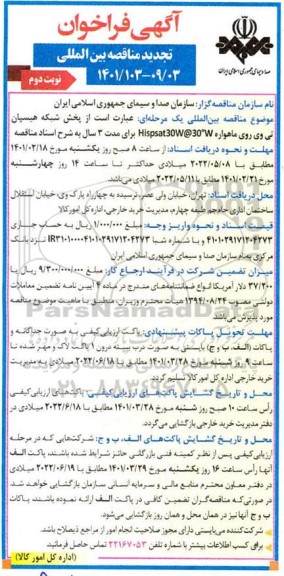 آگهی فراخوان
تجدید مناقصه بین المللی
۱۴۰۱/۱۰۳-۰۹/۰۳
نوبت دوم
صدا و سیمای جمهوری اسلامی ایران
نام سازمان مناقصه‌گزار: سازمان صدا و سیمای جمهوری اسلامی ایران
موضوع مناقصه بین‌المللی یک مرحله‌ای: عبارت است از پخش شبکه هیسپان
تی وی روی ماهواره Hispsat30W@30°W برای مدت ۳ سال به شرح اسناد مناقصه
مهلت و نحوه دریافت اسناد: از ساعت ۸ صبح روز یکشنبه مورخ ۱۴۰۱/۰۲/۱۸
مطابق با ۲۰۲۲/۰۵/۰۸ میلادی حداکثر تا ساعت ۱۴ روز چهارشنبه
مورخ ۱۴۰۱/۰۲/۲۱ مطابق با ۲۰۲۲/۰۵/۱۱ میلادی می‌باشد.
محل دریافت اسناد: تهران، خیابان ولی عصر، نرسیده به چهارراه پارک وی، خیابان استقلال
ساختمان اداری جام‌جم طبقه چهارم، مدیریت خرید خارجی، اداره کل امور کالا
قیمت اسناد و نحوه واریز وجه: مبلغ ۱/۰۰۰/۰۰۰ ریال به حساب جاری
۴۱۰۱۰۲۹۱۷۱۲۰۴۲۷۳ و یا شماره شبا IR۳۱۰۱۰۰۰۰۴۱۰۱۰۲۹۱۷۱۲۰۴۲۷۳ نزد بانک
مرکزی به‌نام سازمان صدا و سیمای جمهوری اسلامی ایران
میزان تضمین شرکت در فرآیند ارجاع کار: مبلغ ۹/۳۰۰/۰۰۰/۰۰۰ ریال یا
۳۷/۲۰۰ دلار آمریکا انواع ضمانتنامه‌های مندرج در ماده ۴ آیین نامه تضمین معاملات
دولتی مصوب ۱۳۹۴/۰۹/۲۴ هیأت محترم وزیران، منطبق با ماهیت موضوع مناقصه
مورد پذیرش می‌باشد.
مهلت تحویل پاکات پیشنهادی: پاکت ارزیابی کیفی به صورت جداگانه و
پاکات (الف، ب و ج) بایستی به صورت دربسته درون ۱ پاکت لاک و مهر شده تا
ساعت ۹ صبح شنبه مورخ ۱۴۰۱/۰۳/۲۸ مطابق با ۲۰۲۲/۰۶/۱۸ میلادی به مدیریت
خرید خارجی اداره کل امور کالا تسلیم گردد.
محل و تاریخ گشایش پاکت‌های ارزیابی کیفی: پاکت‌های ارزیابی کیفی
رأس ساعت ۱۰ صبح روز شنبه مورخ ۱۴۰۱/۰۳/۲۸ مطابق با ۲۰۲۲/۶/۱۸ میلادی در
دفتر مدیریت خرید خارجی بازگشایی می‌گردد.
محل و تاریخ گشایش پاکت‌های الف، ب و ج: شرکت‌هایی که در مرحله
ارزیابی کیفی از نظر کمیته فنی بازرگانی حائز شرایط شده باشند، پاکت الف
آنها رأس ساعت ۱۶ روز یکشنبه مورخ ۱۴۰۱/۰۳/۲۹ مطابق با ۲۰۲۲/۰۶/۱۹ میلادی
در دفتر معاون محترم منابع مالی و سرمایه انسانی سازمان بازگشایی خواهد شد
در صورتی‌که مناقصه‌گران تضمین کافی در پاکت الف ارائه نموده باشند، پاکات
ب و ج آنها نیز در همان محل و همان روز بازگشایی می‌شود.
شرکت‌کننده می‌بایستی دارای مجوز صلاحیت انجام امور از مراجع ذیصلاح باشد.
برای کسب اطلاعات بیشتر با شماره تلفن ۲۲۱۶۷۰۵۳ تماس حاصل فرمائید.
(اداره کل امور کالا)